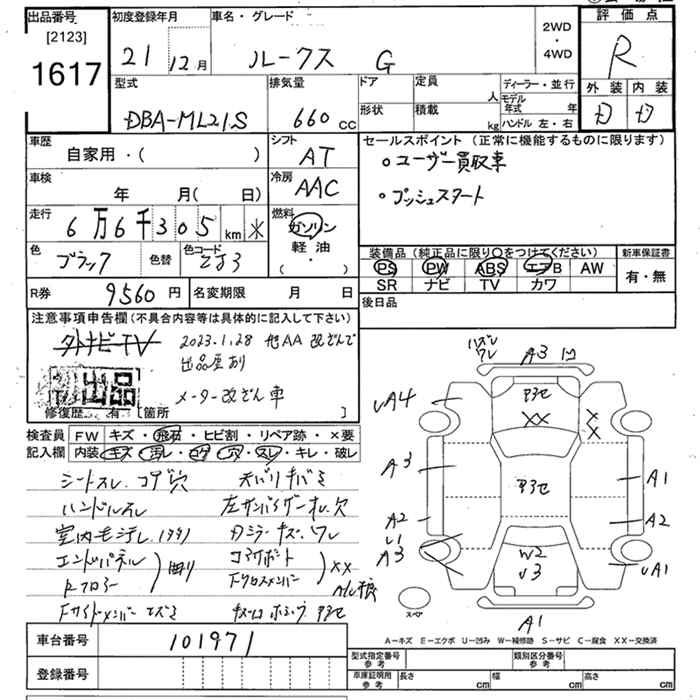 出品番号
[2123]
1617
初度登録年月
21 12月
車名・グレード
ルークス G
2WD
・
4WD
評価点
R
外装 内装
D D
型式
DBA-ML21S
排気量
660 cc
ドア
形状
定員
人
積載
kg
ディーラー・並行
モデル年式 年
ハンドル 左・右
車歴
自家用・( )
シフト
AT
車検
年 月( 日)
冷房
AAC
走行
6万6千305 km ※
燃料
ガソリン
軽・油
・( )
色
ブラック
色替
色コード
ZJ3
R券
9560円
名変期限
月 日
セールスポイント(正常に機能するものに限ります)
○ユーザー買取車
○プッシュスタート
装備品(純正品に限り○をつけてください)
PS PW ABS エアB AW
SR ナビ TV カワ
新車保証書
有・無
後日品
注意事項申告欄(不具合内容等は具体的に記入して下さい)
外ナビTV
2023.1.28 他AA 改ざんで
出品歴あり
出品
メーター改ざん車
修復歴 有 [箇所 ]
検査員 FW キズ・飛石・ヒビ割・リペア跡・×要
記入欄 内装 キズ・汚レ・コゲ・穴・スレ・キレ・破レ
シートスレ コゲ穴 天バリキバミ
ハンドルスレ 左サンバイザーオレ欠
室内毛汚レ
エンドパネル
Rフロアー
コアサポート
Fクロスメンバー
XX
車台番号
101971
登録番号
ハズレ
ワレ
A3
UA4
XX
X
X
A3
A1
A2
A2
U1
A3
UA1
W2
U3
A1
スペア
A-キズ E-エクボ U-凹み W-補修跡 S-サビ C-腐食 XX-交換済
型式指定番号
参考
類別区分番号
参考
車庫証明用
参考
長さ cm 幅 cm 高さ cm